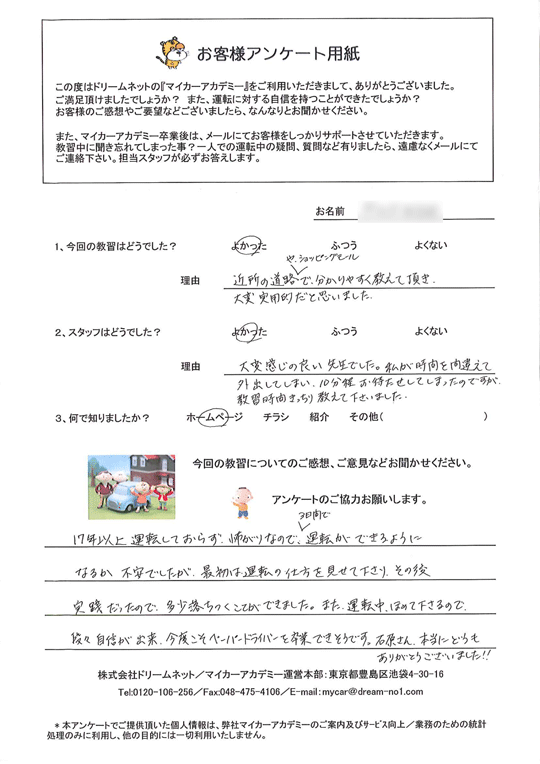 お客様アンケート用紙
この度はドリームネットの『マイカーアカデミー』をご利用いただきまして、ありがとうございました。
ご満足頂けましたでしょうか？ また、運転に対する自信を持つことができたでしょうか？
お客様のご感想やご要望などございましたら、なんなりとお聞かせください。
また、マイカーアカデミー卒業後は、メールにてお客様をしっかりサポートさせていただきます。
教習中に聞き忘れてしまった事？一人での運転中の疑問、質問など有りましたら、遠慮なくメールにて
ご連絡下さい。担当スタッフが必ずお答えします。
お名前
1、今回の教習はどうでした？ よかった ふつう よくない
や、ショッピングモール
理由 近所の道路で、分かりやすく教えて頂き、
大変実用的だと思いました。
2、スタッフはどうでした？ よかった ふつう よくない
理由 大変感じの良い先生でした。私が時間を間違えて
外出してしまい、10分程お待たせしてしまったのですが、
教習時間きっちり教えて下さいました。
3、何で知りましたか？ ホームページ チラシ 紹介 その他( )
今回の教習についてのご感想、ご意見などお聞かせください。
アンケートのご協力お願いします。
3日間で
17年以上運転しておらず、怖がりなので、運転ができるように
なるか不安でしたが、最初は運転の仕方を見せて下さり、その後
実践だったので、多少落ちつくことができました。また、運転中、ほめて下さるので、
段々自信が出来、今度こそペーパードライバーを卒業できそうです。石原さん、本当にどうも
ありがとうございました!!
株式会社ドリームネット／マイカーアカデミー運営本部：東京都豊島区池袋4-30-16
Tel:0120-106-256／Fax:048-475-4106／E-mail：mycar@dream-no1.com
＊本アンケートでご提供頂いた個人情報は、弊社マイカーアカデミーのご案内及びサービス向上／業務のための統計
処理のみに利用し、他の目的には一切利用いたしません。